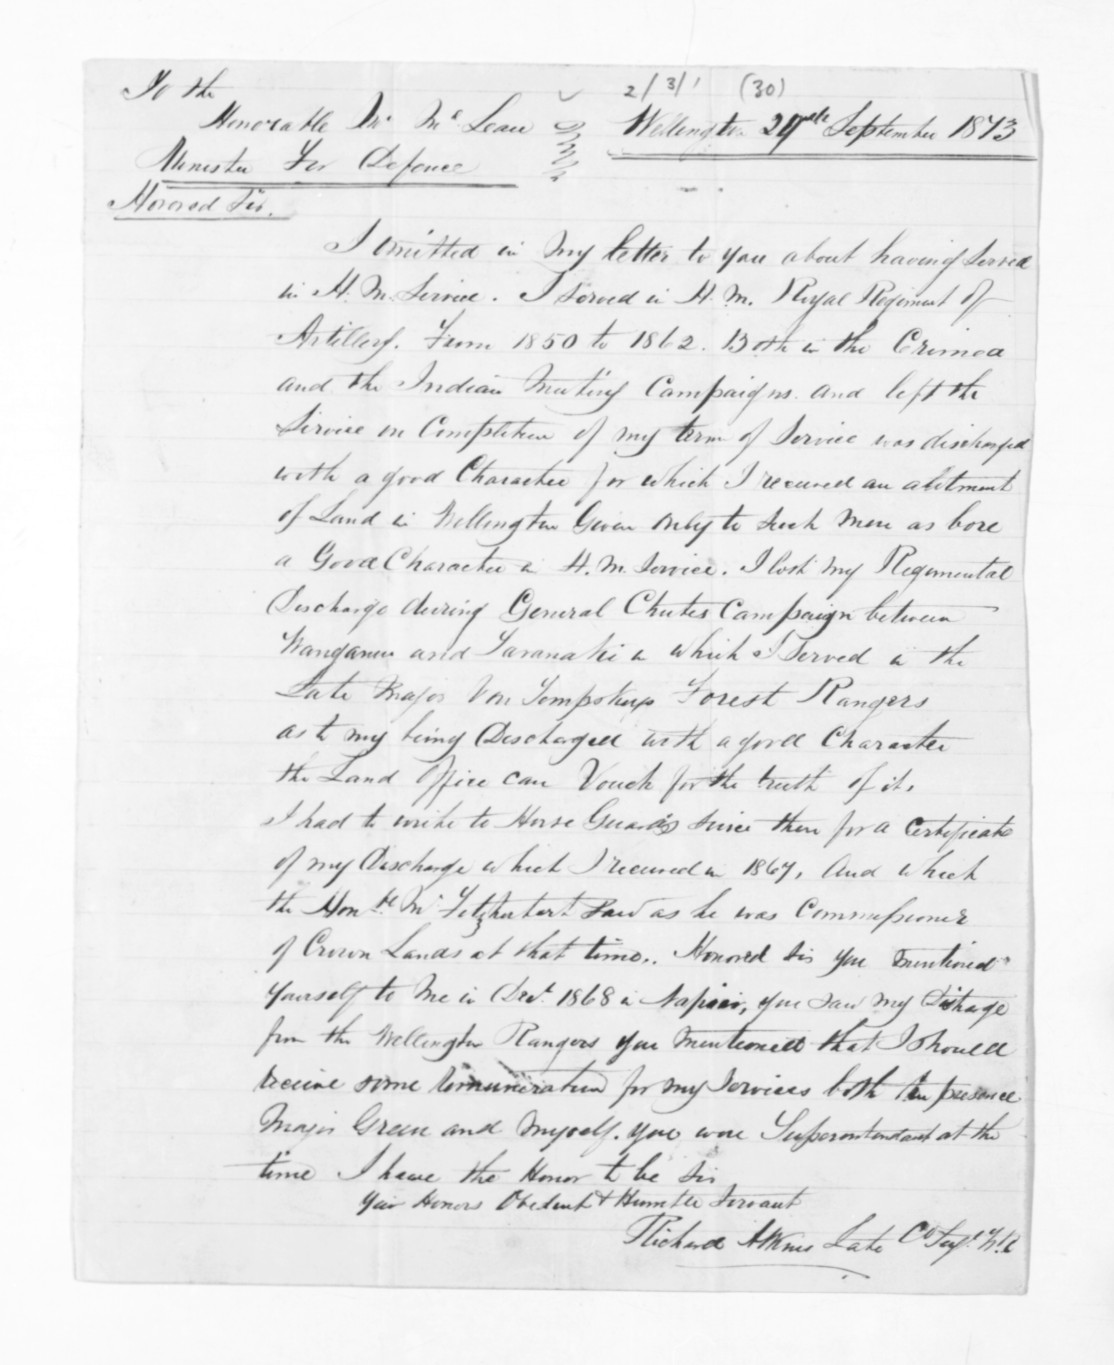 2/3/1 (30)
To the
Honorable Mr McLean
Wellington 29th September 1873
Minister For Defence
Honored Sir.
I omitted in my letter to you about having Served
in H. M. Service. I Served in H. M. Royal Regiment of
Artillery. From 1850 to 1862. Both in the Crimea
and the Indian Mutiny Campaigns. and left the
Service on Completion of my term of Service was discharged
with a good Character for which I received an alotment
of Land in Wellington Given only to such men as bore
a Good Character in H. M. Service. I lost my Regimental
Discharge during General Chutes Campaign between
Wanganui and Taranaki in which I Served in the
Late Major Von Tempskys Forest Rangers
as to my being Discharged with a good Character
the Land Office can Vouch for the truth of it.
I had to write to Horse Guards since then for a Certificate
of my Discharge which I received in 1867, And which
the Honble Mr Fitzherbert Saw as he was Commissioner
of Crown Lands at that time.. Honored Sir you mentioned
yourself to me in Decr. 1868 in Napier, you saw my Discharge
from the Wellington Rangers you mentioned that I should
receive some remuneration for my Services both in presence
Major Green and Myself. you were Superontendant at the
time I have the Honor to be Sir
Your Honors Obedient & Humble Servant
Richard Atkins Late